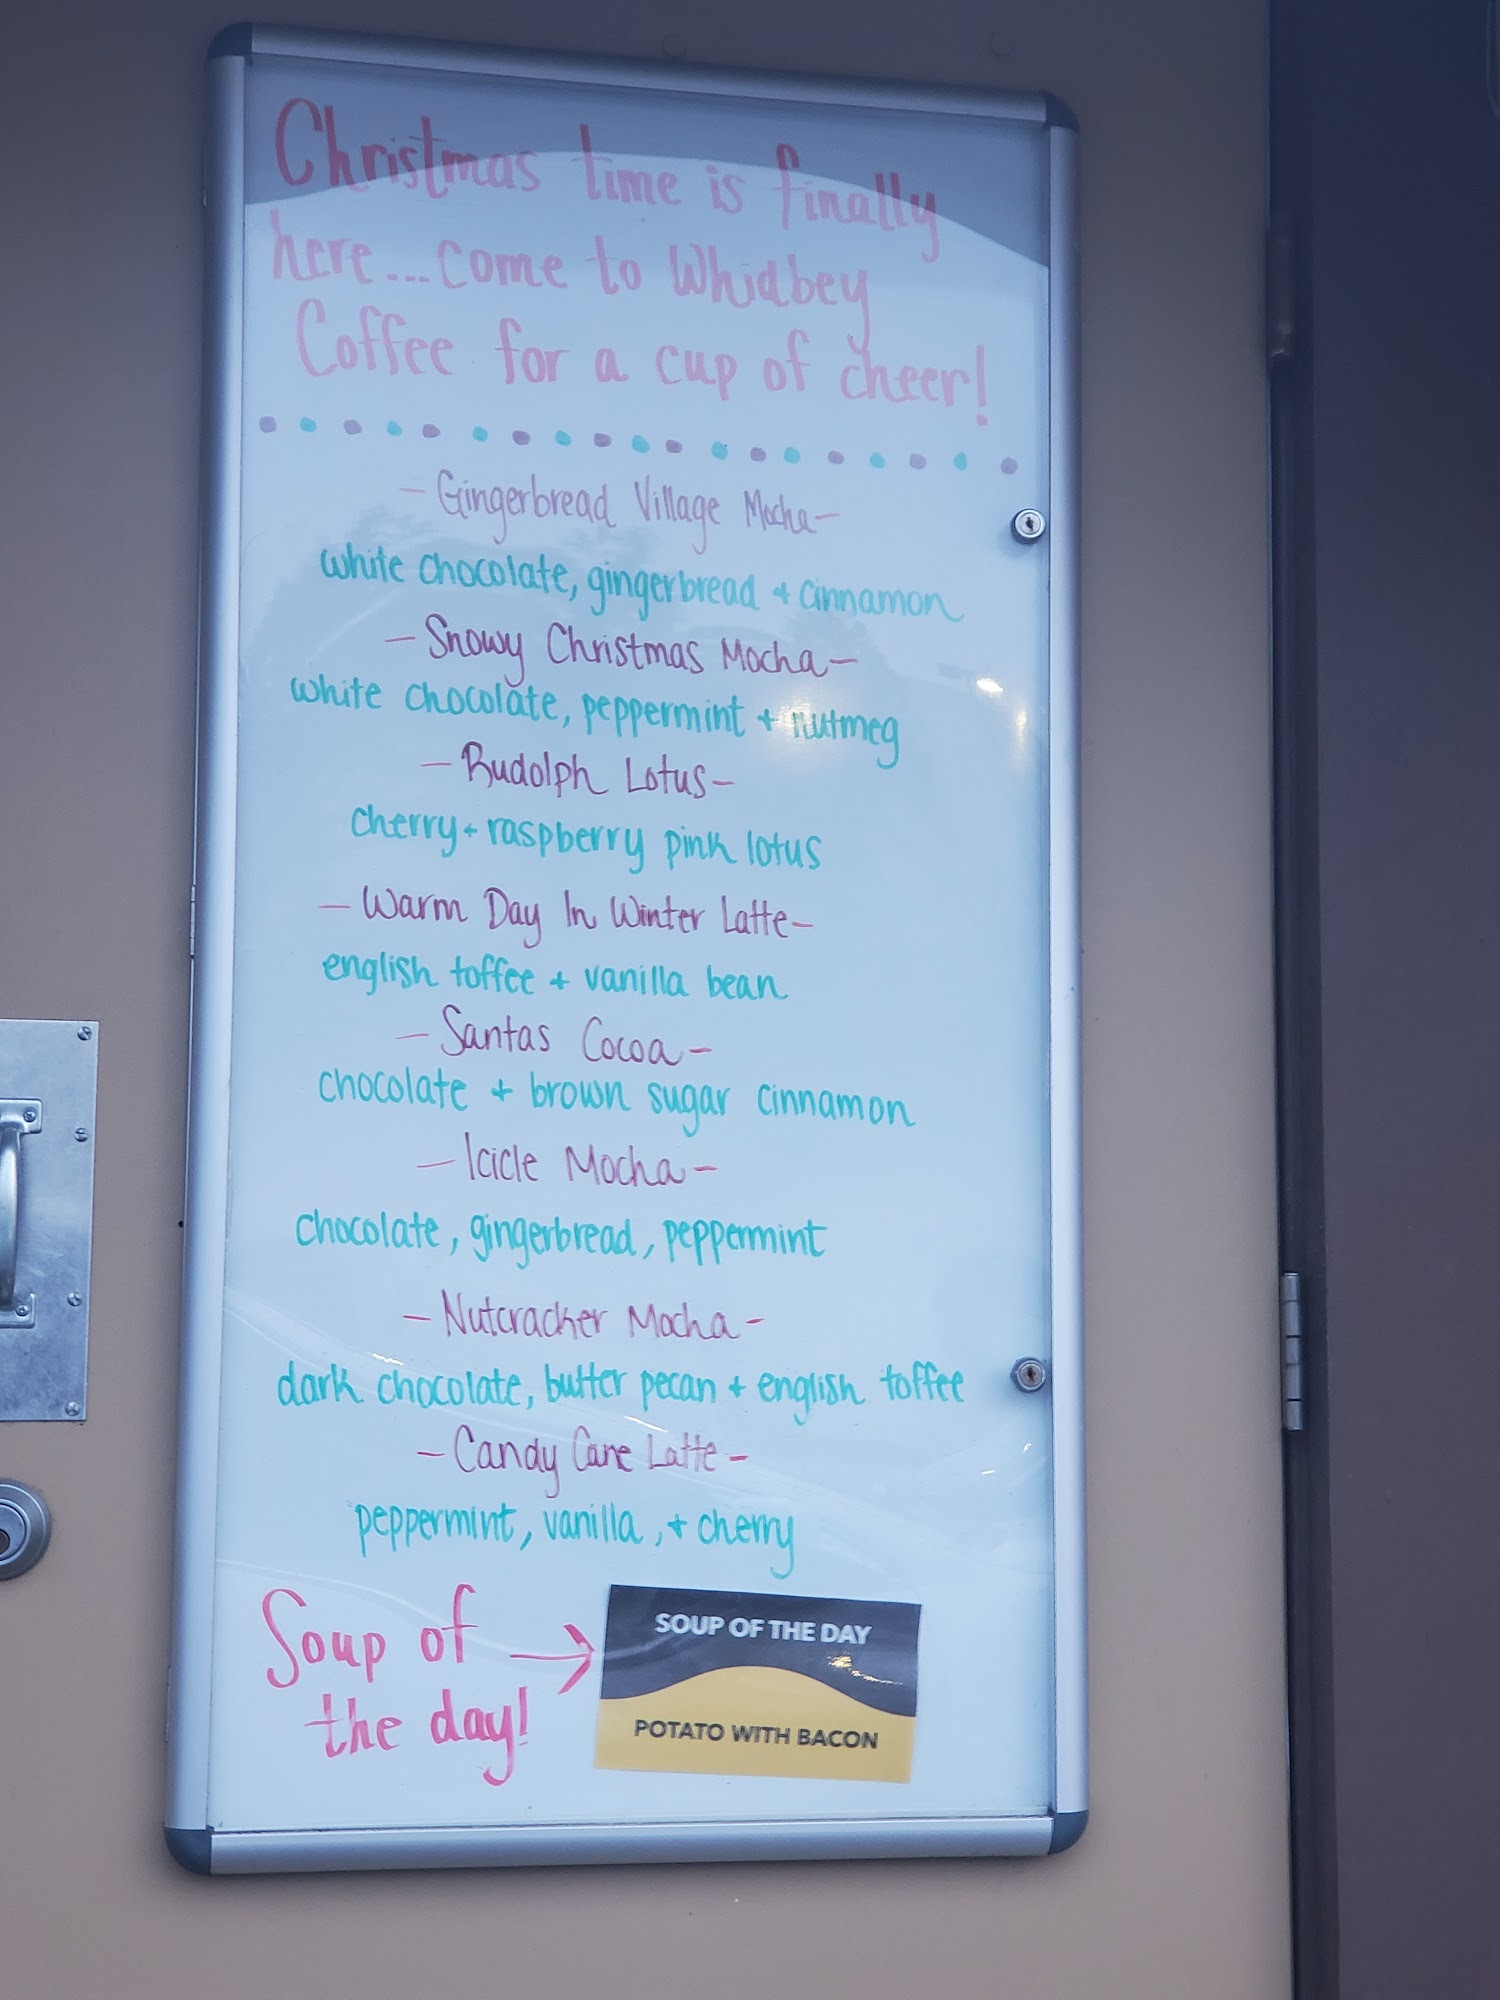 Christmas time is finally
here...come to Whidbey
Coffee for a cup of cheer!
- Gingerbread Village Mocha -
white chocolate, gingerbread + cinnamon
- Snowy Christmas Mocha -
white chocolate, peppermint + nutmeg
- Rudolph Lotus -
cherry + raspberry pink lotus
- Warm Day In Winter Latte -
english toffee + vanilla bean
- Santas Cocoa -
chocolate + brown sugar cinnamon
- Icicle Mocha -
chocolate, gingerbread, peppermint
- Nutcracker Mocha -
dark chocolate, butter pecan + english toffee
- Candy Cane Latte -
peppermint, vanilla, + cherry
Soup of →
the day!
SOUP OF THE DAY
POTATO WITH BACON